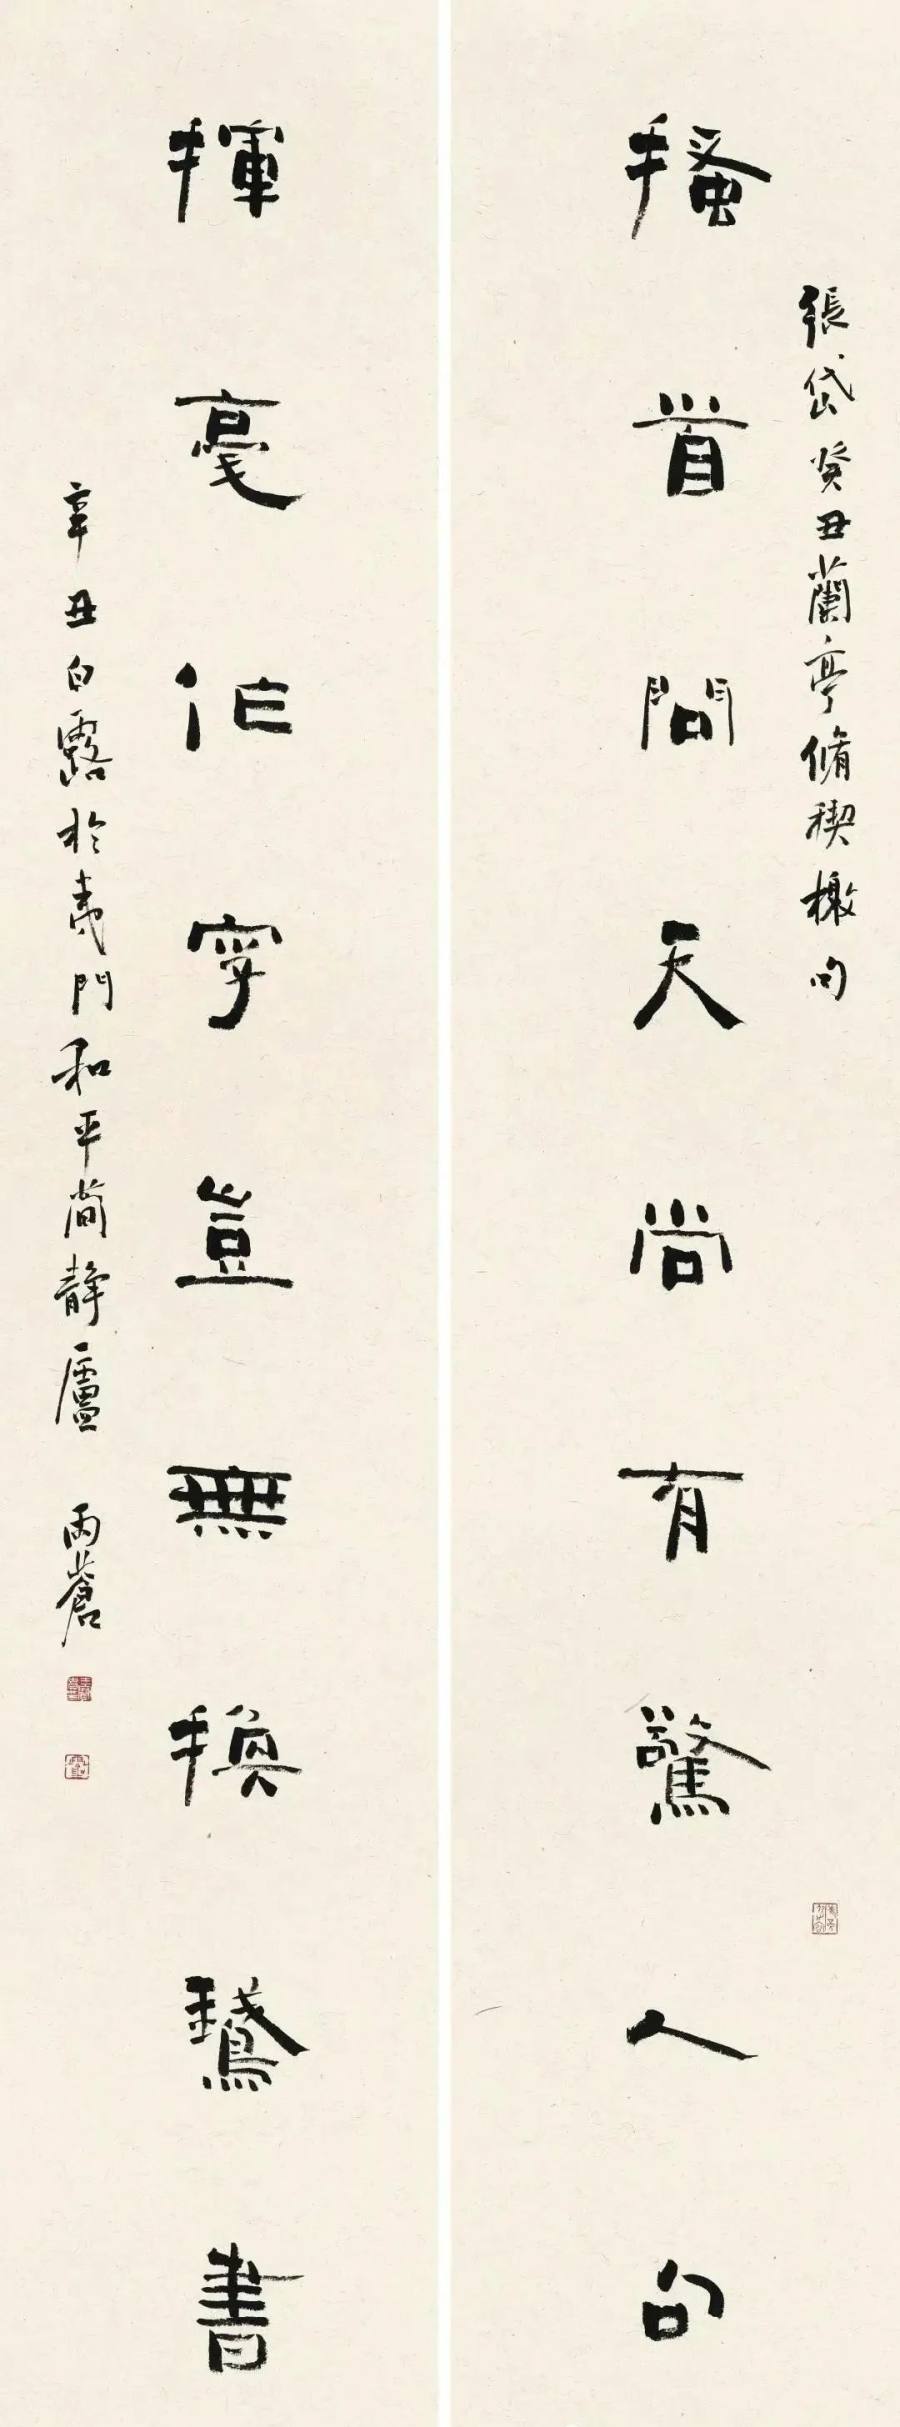 張岱癸丑蘭亭脩禊檄句
搔首問天尚有驚人句
揮毫作字豈無換鵝書
辛丑白露於夷門和平简静廬 雨蒼